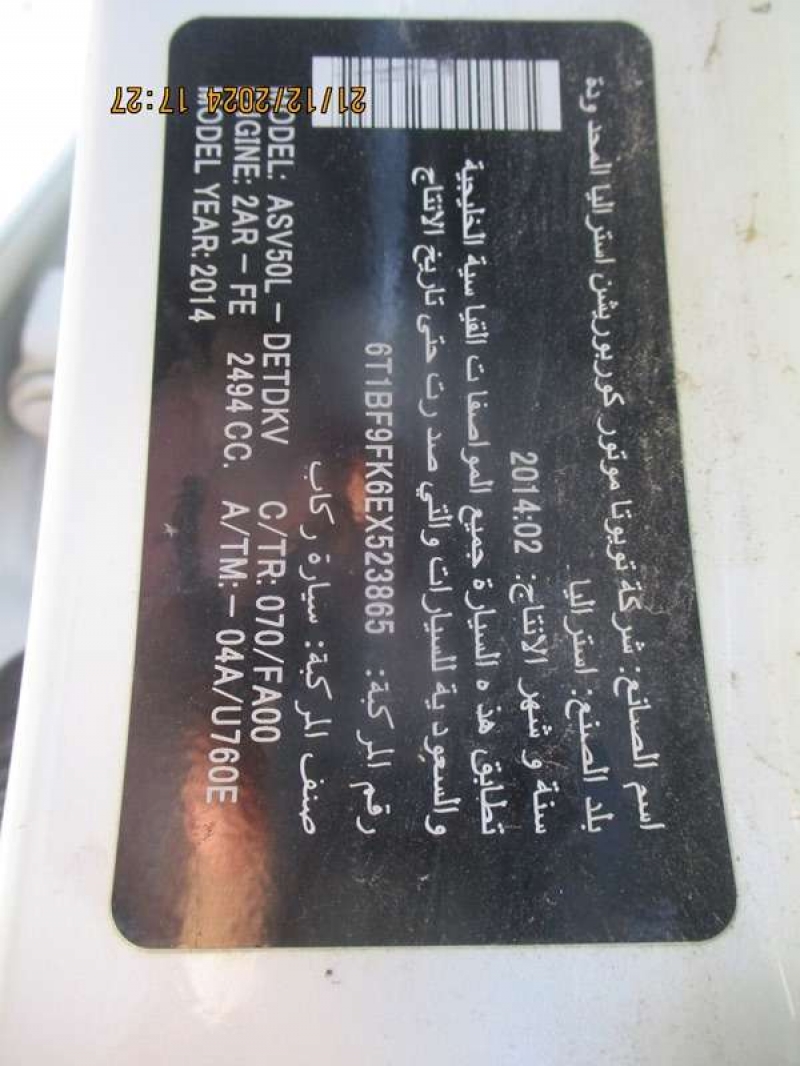 اسم الصانع: شركة تويوتا موتور كوربوريشن استراليا المحدودة
بلد الصنع: استراليا
سنة و شهر الانتاج: 2014:02
تطابق هذه السيارة جميع المواصفات القياسية الخليجية
والسعودية للسيارات والتي صدرت حتى تاريخ الانتاج
رقم المركبة: 6T1BF9FK6EX523865
صنف المركبة: سيارة ركاب
MODEL: ASV50L – DETDKV C/TR: 070/FA00
ENGINE: 2AR – FE 2494 CC. A/TM:– 04A/U760E
MODEL YEAR: 2014
21/12/2024 17:27